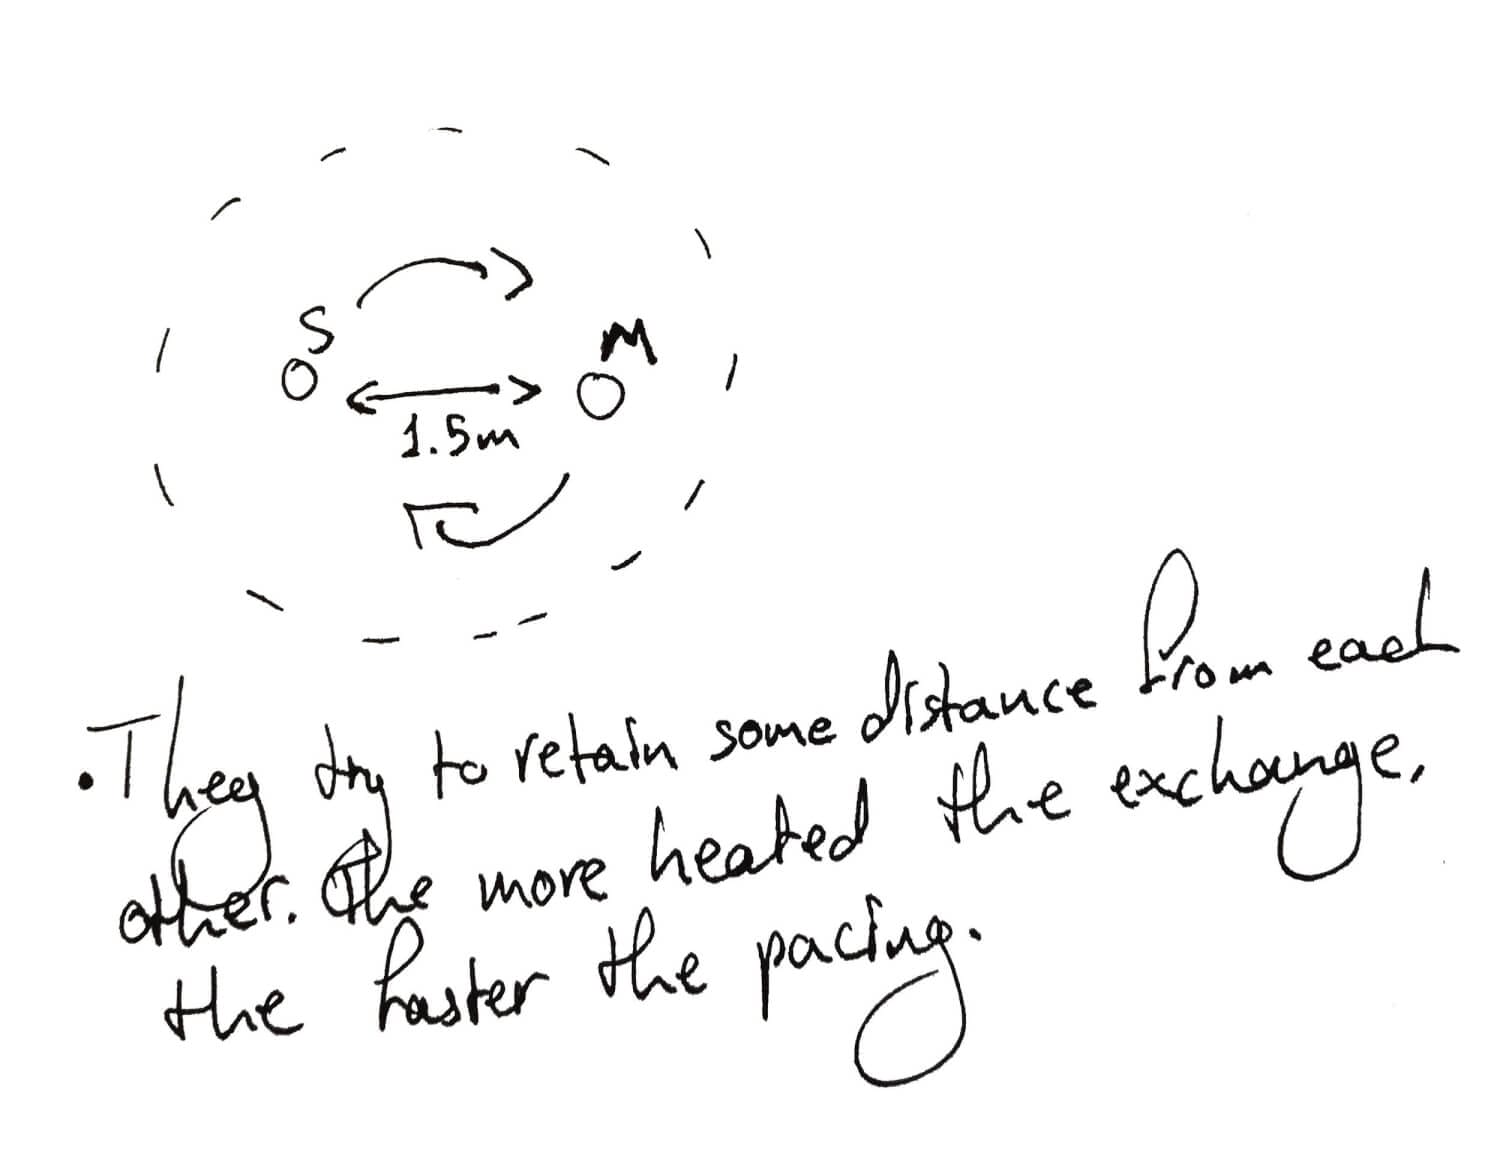 S
M
1.5m
• They try to retain some distance from each
other. The more heated the exchange,
the faster the pacing.